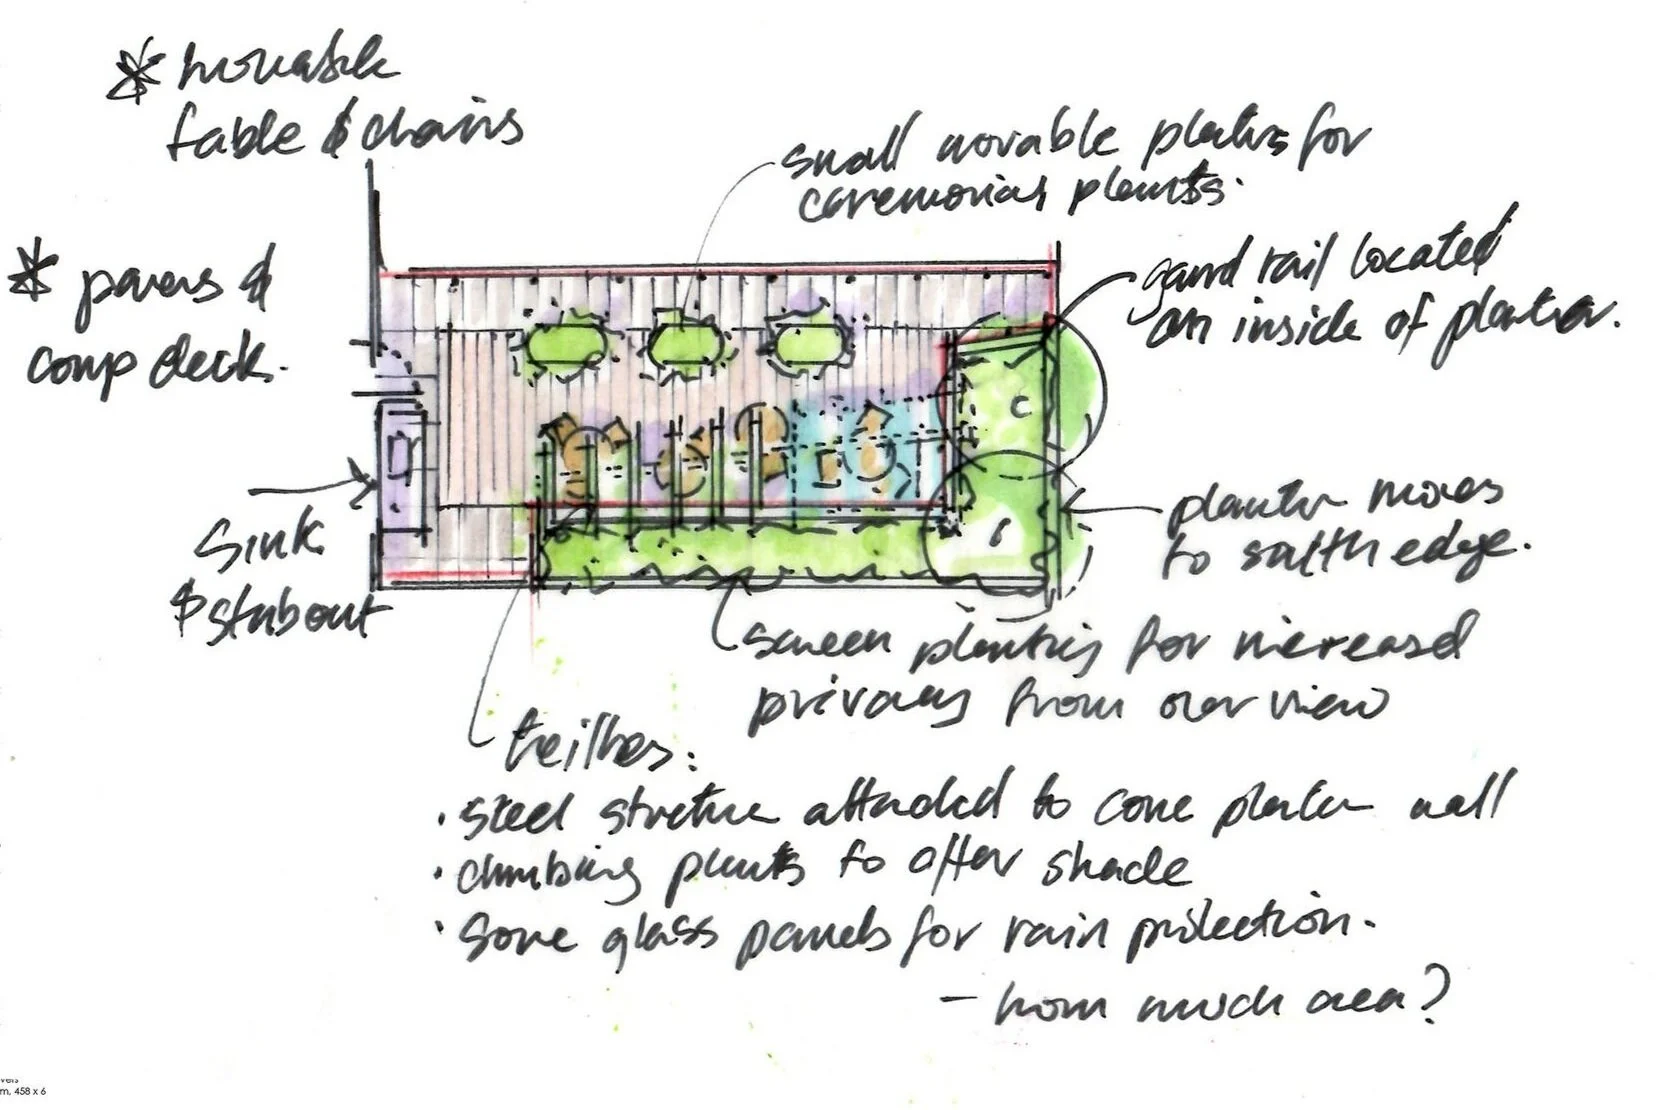 * movable
table & chairs
small movable planters for
ceremonial plants.
* pavers &
comp deck.
guard rail located
on inside of planter.
C
6
Sink
& stubout
planter moves
to south edge.
screen planting for increased
privacy from over view
trellises:
· steel structure attached to conc planter wall
· climbing plants to offer shade
· some glass panels for rain protection.
- how much area?
m. 458 x 6